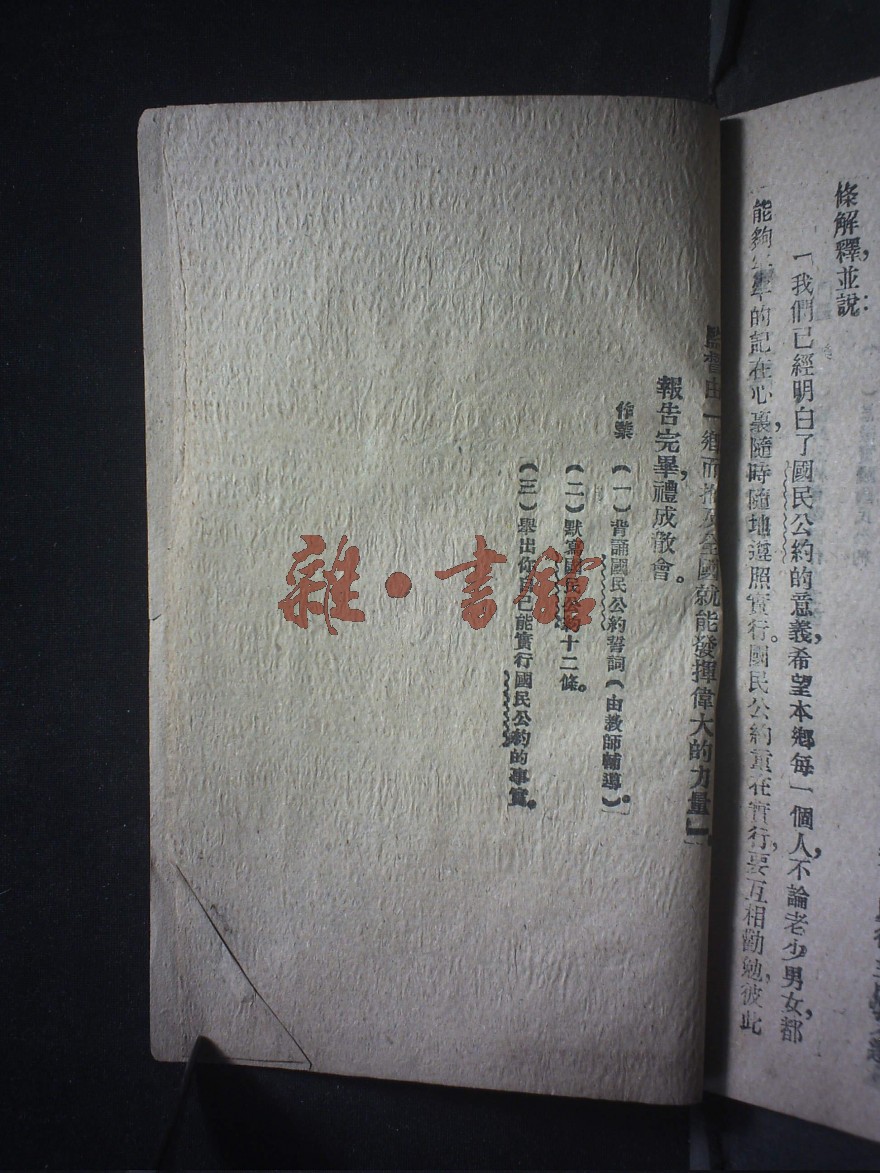 條解釋，並說：
「我們已經明白了國民公約的意義，希望本鄉每一個人，不論老少男女，都
能夠牢牢的記在心裏，隨時隨地遵照實行。國民公約重在實行，要互相勸勉，彼此
監督由一鄉而推及全國就能發揮偉大的力量」。
報告完畢，禮成散會。
作業
（一）背誦國民公約誓詞（由教師輔導）。
（二）默寫國民公約十二條。
（三）舉出你自己能實行國民公約的事實。
雜·書館